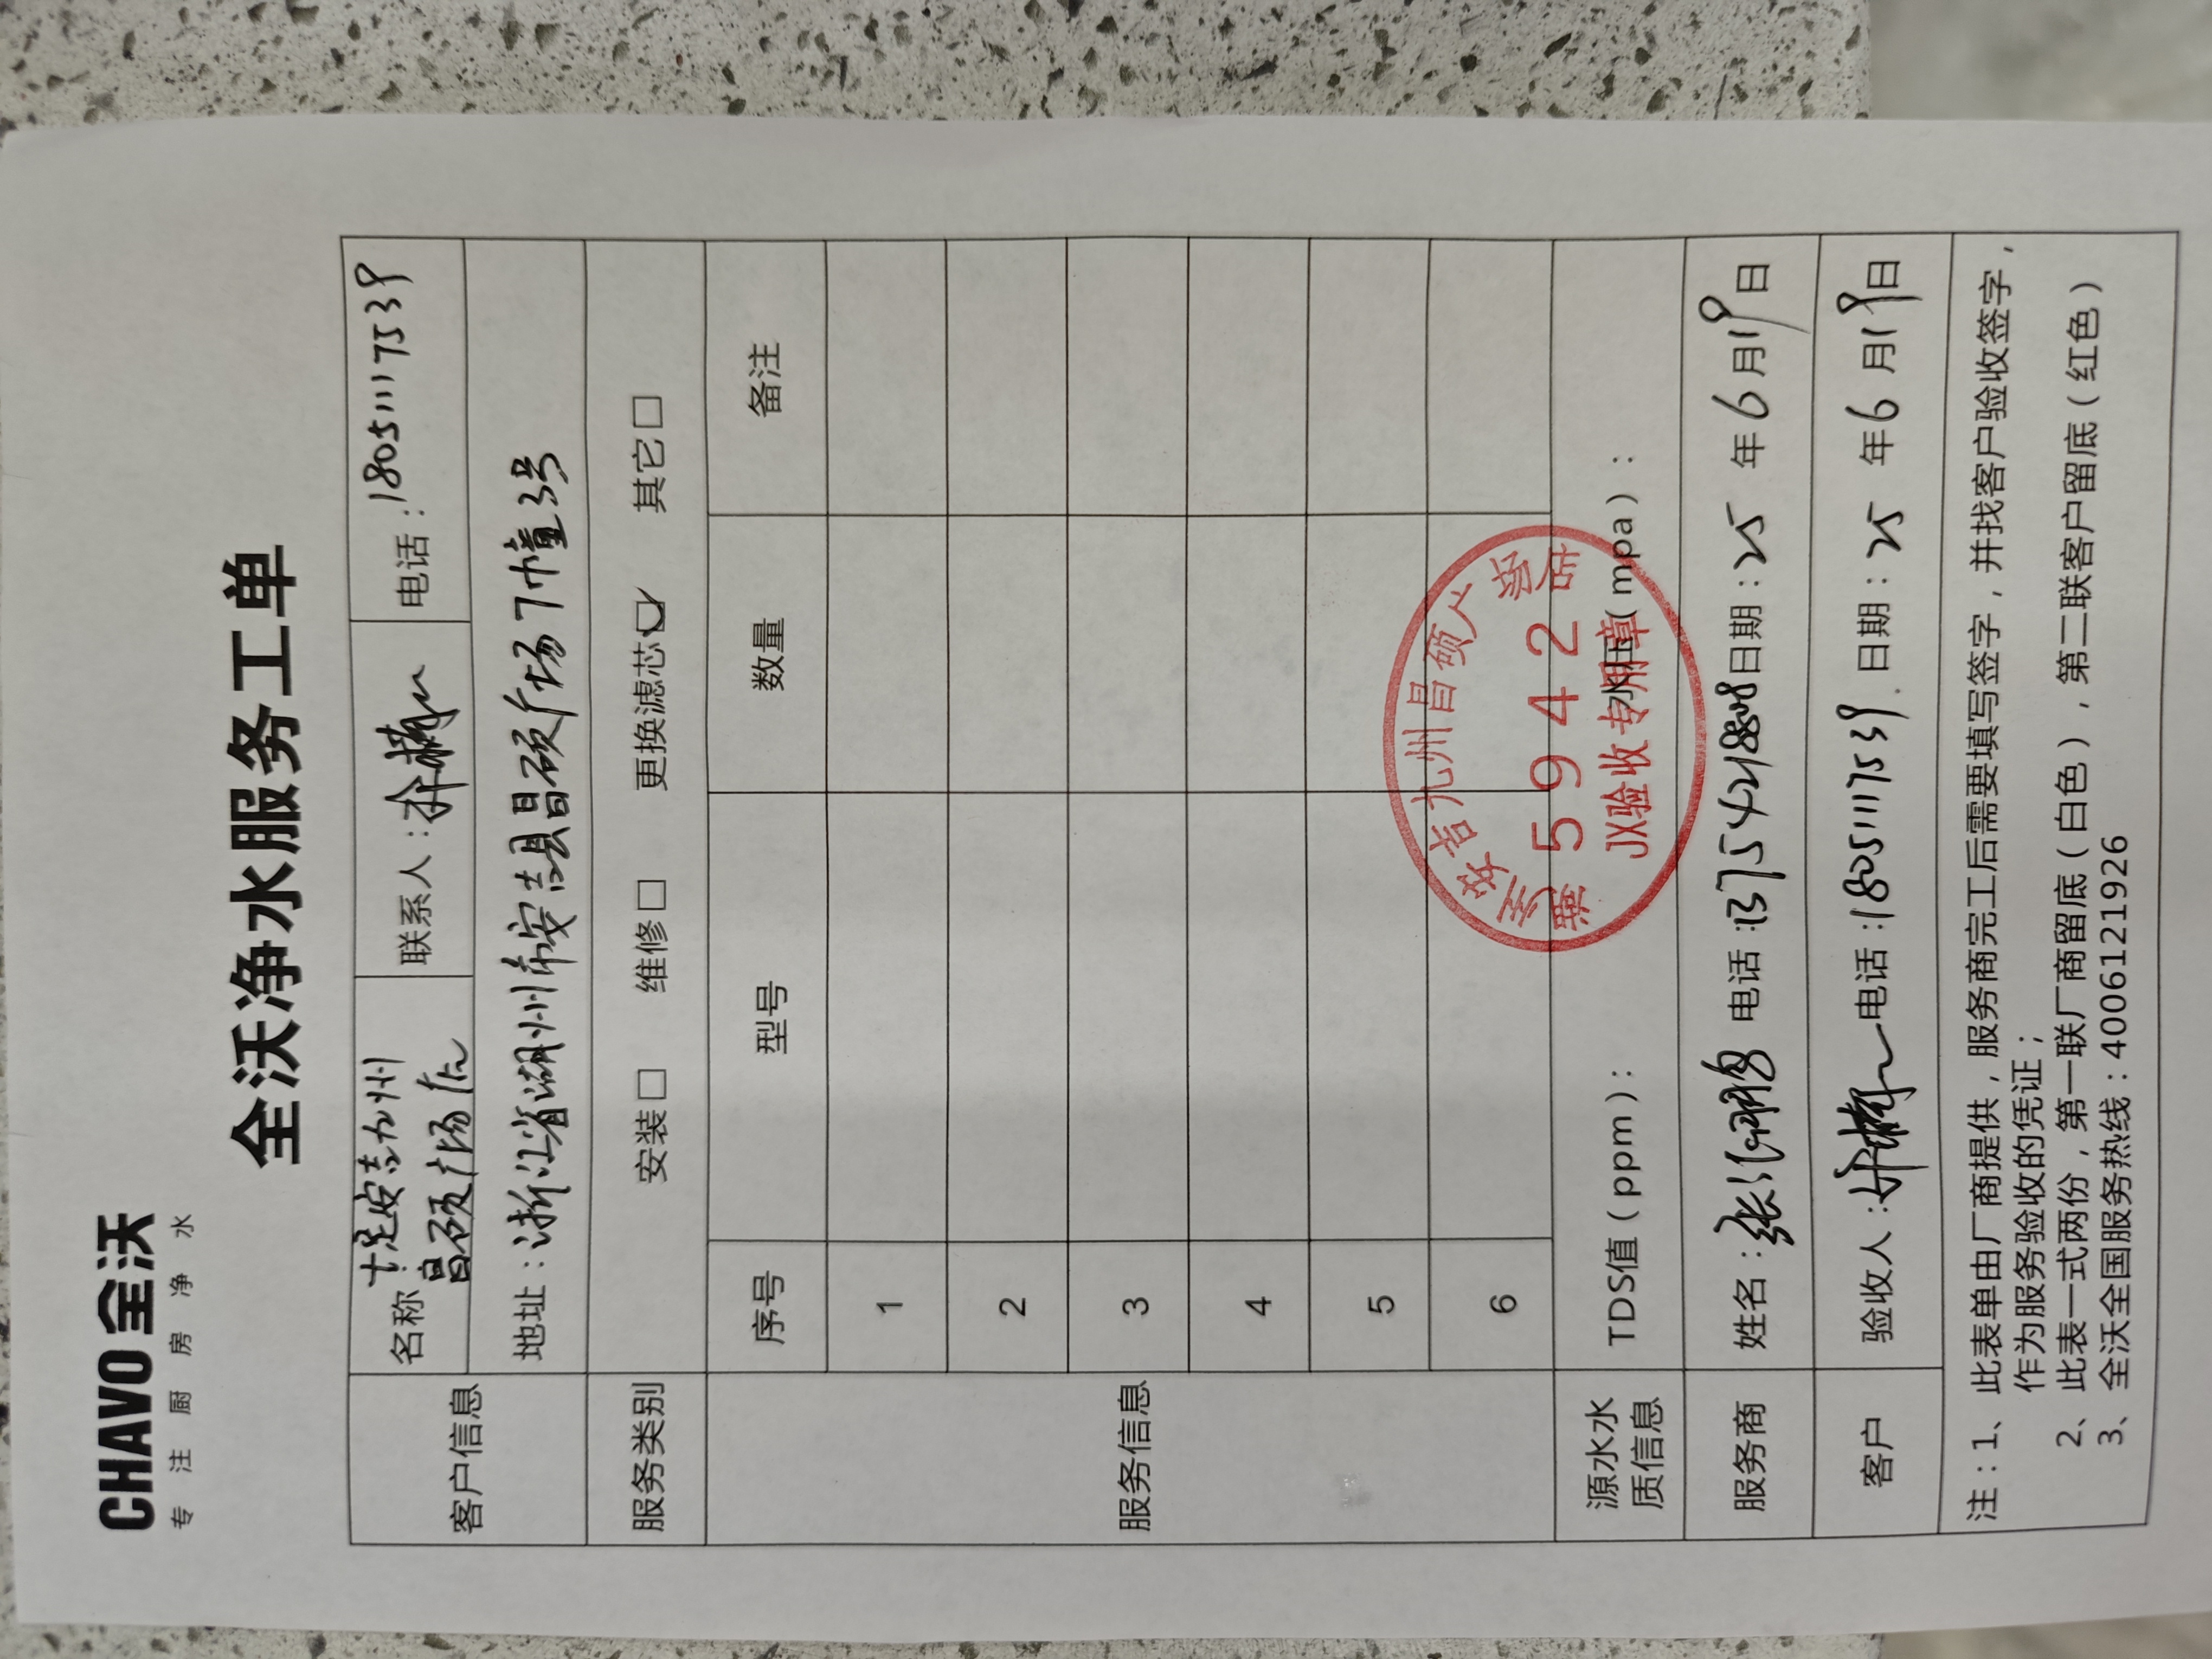 CHAVO 全沃
专注厨房净水
全沃净水服务工单
客户信息 名称 十足安吉九州 联系人： 电话：18051117539
昌硕广场店
地址：浙江省湖州市安吉县昌硕广场7幢3号
服务类别 安装□ 维修□ 更换滤芯☑ 其它□
服务信息 序号 型号 数量 备注
1
2
3
4
5
6
源水水质信息 TDS值（ppm）： 水压（mpa）：
安吉九州昌硕广场店
5942
JX验收专用章
服务商 姓名： 电话： 日期：25年6月19日
客户 验收人： 电话：18051117539. 日期：25年6月19日
注：1、此表单由厂商提供，服务商完工后需要填写签字，并找客户验收签字，
作为服务验收的凭证；
2、此表一式两份，第一联厂商留底（白色），第二联客户留底（红色）
3、全沃全国服务热线：4006121926